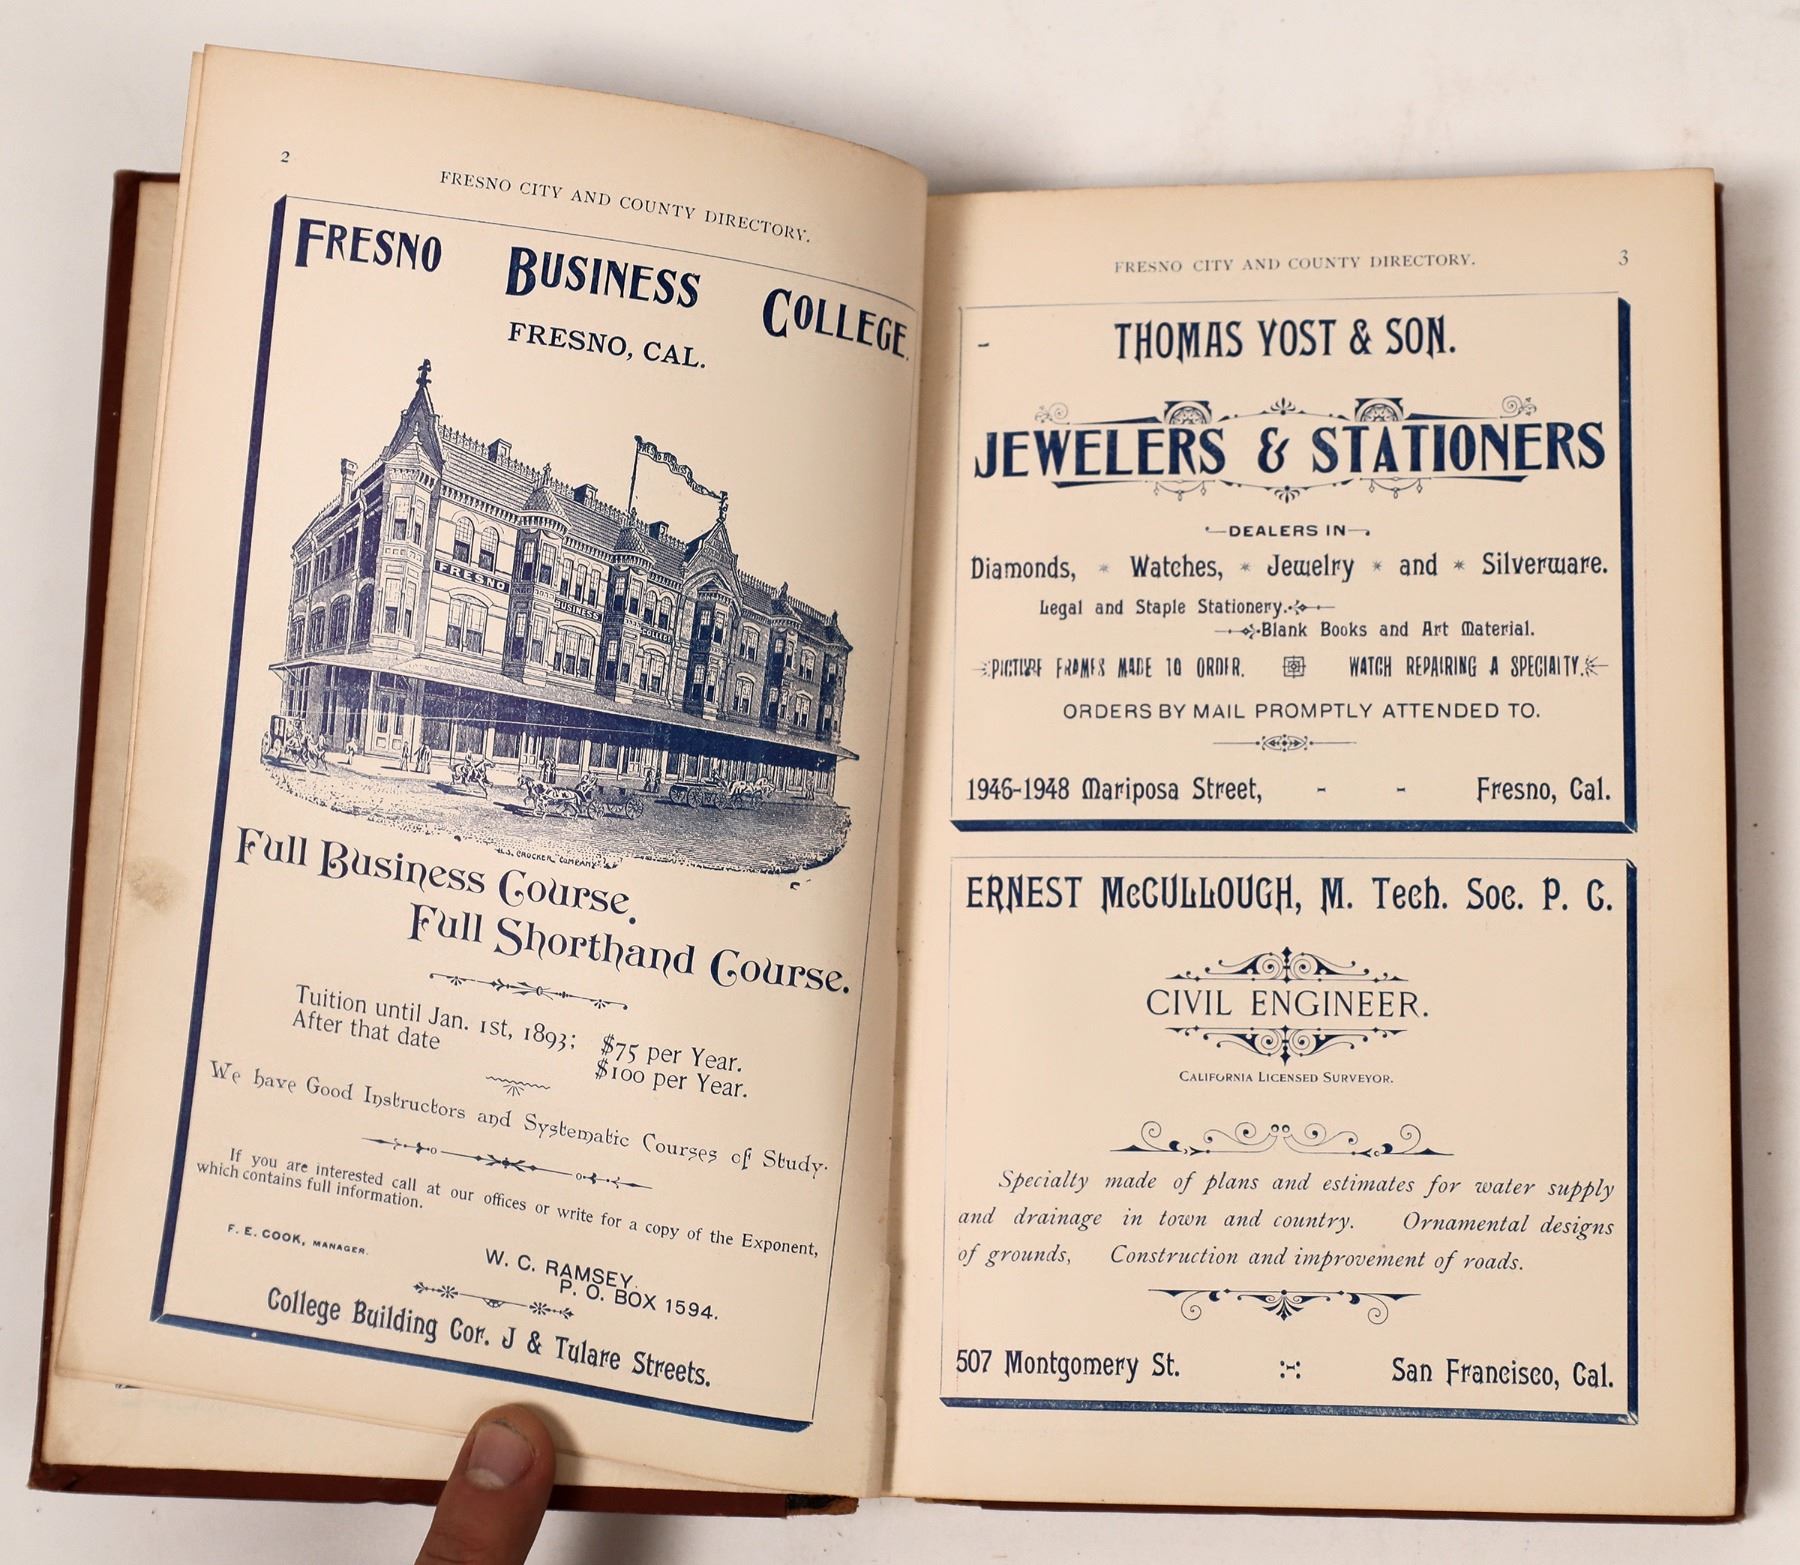 2
FRESNO CITY AND COUNTY DIRECTORY.
FRESNO BUSINESS COLLEGE.
FRESNO, CAL.
FRESNO BUSINESS
FRESNO BUSINESS COLLEGE
H.S. CROCKER COMPANY
Full Business Course.
Full Shorthand Course.
Tuition until Jan. 1st, 1893; $75 per Year.
After that date $100 per Year.
We have Good Instructors and Systematic Courses of Study.
If you are interested call at our offices or write for a copy of the Exponent,
which contains full information.
F. E. COOK, MANAGER.
W. C. RAMSEY.
P. O. BOX 1594.
College Building Cor. J & Tulare Streets.
FRESNO CITY AND COUNTY DIRECTORY. 3
- THOMAS YOST & SON.
JEWELERS & STATIONERS
DEALERS IN
Diamonds, * Watches, * Jewelry * and * Silverware.
Legal and Staple Stationery.
Blank Books and Art Material.
PICTURE FRAMES MADE TO ORDER. WATCH REPAIRING A SPECIALTY.
ORDERS BY MAIL PROMPTLY ATTENDED TO.
1946-1948 Mariposa Street, - - Fresno, Cal.
ERNEST McCULLOUGH, M. Tech. Soc. P. C.
CIVIL ENGINEER.
CALIFORNIA LICENSED SURVEYOR.
Specialty made of plans and estimates for water supply
and drainage in town and country. Ornamental designs
of grounds, Construction and improvement of roads.
507 Montgomery St. San Francisco, Cal.